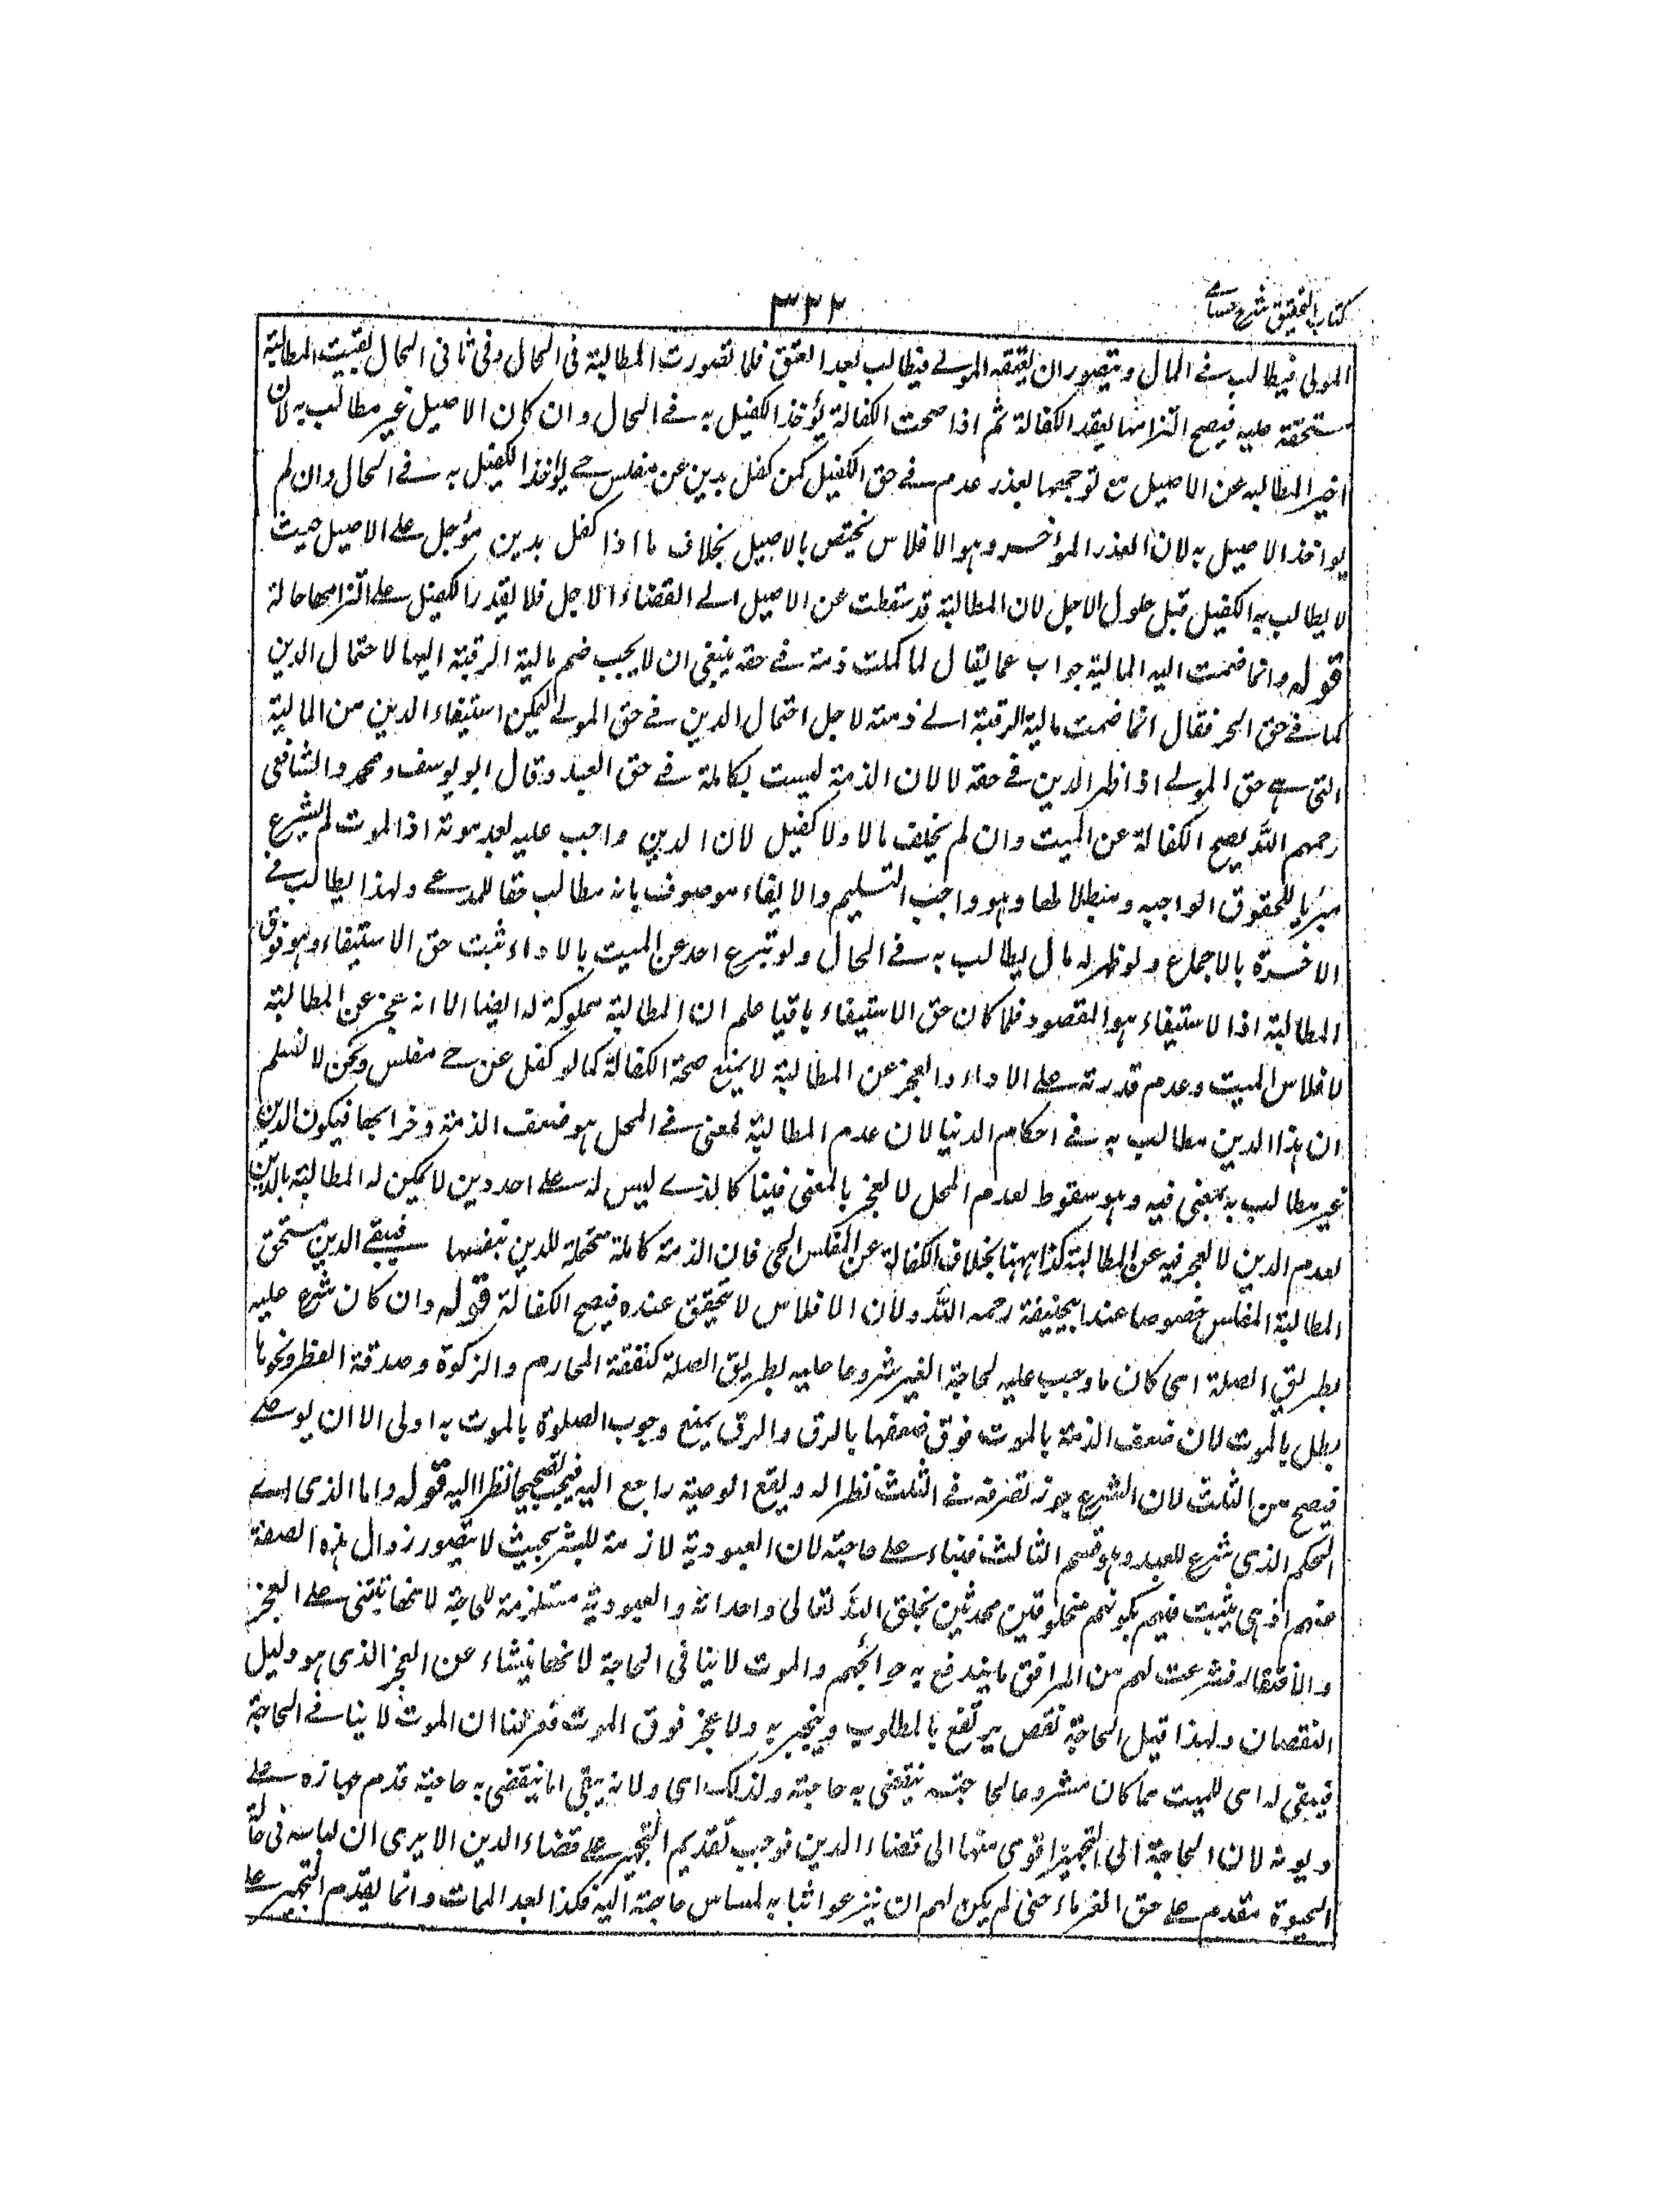 كتاب التحقيق شرح حسامے
٣٣٢
المولى فيطالب فے المال ويتصور ان يعتقه المولے فيطالب بعد العتق فلما تصورت المطالبة فى الحال وفى ثانى الحال بقيت المطالبة
مستحقة عليه فيصح التزامها بعقد الكفالة ثم اذا صحت الكفالة يؤخذ الكفيل به فے الحال وان كان الاصيل غير مطالب به لان
اخير المطالبه عن الاصيل مع توجهها لعذر عدم فے حق الكفيل كمن كفل بدين عن مفلس حے يؤاخذ الكفيل به فے الحال وان لم
يواخذ الاصيل به لان العذر المؤخر وهو الافلاس يختص بالاصيل بخلاف ما اذا كفل بدين مؤجل علے الاصيل حيث
لا يطالب به الكفيل قبل حلول الاجل لان المطالبة قد سقطت عن الاصيل الے انقضاء الاجل فلا يقدر الكفيل علے التزامها حالة
قوله وانما ضمت اليه المالية جواب عما يقال لما كملت ذمة فے حقه ينبغى ان لا يجب ضم مالية الرقبة اليها لاحتمال الدين
كما فے حق الحر فقال انما ضمت مالية الرقبة الے ذمته لاجل احتمال الدين فے حق المولے ليمكن استيفاء الدين من المالية
التى هے حق المولے اذا ظهر الدين فے حقه لا لان الذمة ليست بكاملة فے حق العبد وقال ابو يوسف ومحمد والشافعى
رحمهم الله يصح الكفالة عن الميت وان لم يخلف مالا ولا كفيل لان الدين واجب عليه بعد موته اذ الموت لم يشرع
مبريا للحقوق الواجبه ومبطلا لها وهو واجب التسليم والايفاء موصوف بانه مطالب حقا للمدعے ولهذا يطالب فے
الاخرة بالاجماع ولو ظهر له مال يطالب به فے الحال ولو تبرع احد عن الميت بالاداء ثبت حق الاستيفاء وهو فوق
المطالبة اذ الاستيفاء هو المقصود فلما كان حق الاستيفاء باقيا علم ان المطالبة مملوكة له ايضا الا انه عجز عن المطالبة
لافلاس الميت وعدم قدرته علے الاداء والعجز عن المطالبة لا يمنع صحة الكفالة كما لو كفل عن حے مفلس ونحن لا نسلم
ان هذا الدين مطالب به فے احكام الدنيا لان عدم المطالبة لمعنى فے المحل هو ضعف الذمة وخرابها فيكون الدين
غير مطالب به لمعنى فيه وهو سقوط لعدم المحل لا لعجز بالمعنى فينا كالذے ليس له علے احد دين لا يمكن له المطالبة بالدين
لعدم الدين لا لعجز فيه عن المطالبة كذا ههنا بخلاف الكفالة عن المفلس الحى فان الذمة كاملة متحملة للدين بنفسها فيبقے الدين مستحق
المطالبة المفلس خصوصا عند ابيحنيفة رحمه الله ولان الافلاس لا يتحقق عنده فيصح الكفالة قوله وان كان شرع عليه
بطريق الصلة اى كان ما وجب عليه لحاجة الغير مشروعا عليه بطريق الصلة كنفقة المحارم والزكوة وصدقة الفطر ونحوها
بطل بالموت لان ضعف الذمة بالموت فوق ضعفها بالرق والرق يمنع وجوب الصلوة بالموت به اولى الا ان يوصے
فيصح من الثلث لان الشرع جوز تصرفه فے الثلث نظرا له ويقع الوصية راجع اليه فيجب تصحيحها نظرا اليه قوله واما الذى اے
الحكم الذى شرع للعبد وهو قسم الثالث فبناء علے حاجته لان العبودية لازمة للبشر بحيث لا يتصور زوال هذه الصفة
عنهم اذ هى يثبت فيهم بكونهم مخلوقين محدثين بخلق الله تعالى واحداثه والعبودية مستلزمة للحاجة لانها يبتنى علے العجز
والافتقار فشرعت لهم من المرافق ما يندفع به حوائجهم والموت لا ينافى الحاجة لانها ينشاء عن العجز الذى هو دليل
النقصان ولهذا قيل الحاجة نقص يرتفع بالمطلوب وينجبر به ولا عجز فوق الموت فعرفنا ان الموت لا ينافے الحاجة
فيبقى له اى للميت مما كان مشروعا لحاجته ينقضى به حاجته ولذلك اى ولانه يبقى له ما ينقضى به حاجته قدم جهازه علے
ديونه لان الحاجة الى التجهيز اقوى منها الى قضاء الدين فوجب تقديم التجهيز علے قضاء الدين الا يرى ان لباسه فى حالة
الحيوة مقدم علے حق الغرماء حتى لم يكن لهم ان ينزعوا ثيابه لمساس حاجته اليه فكذا بعد الممات وانما يقدم التجهيز علے